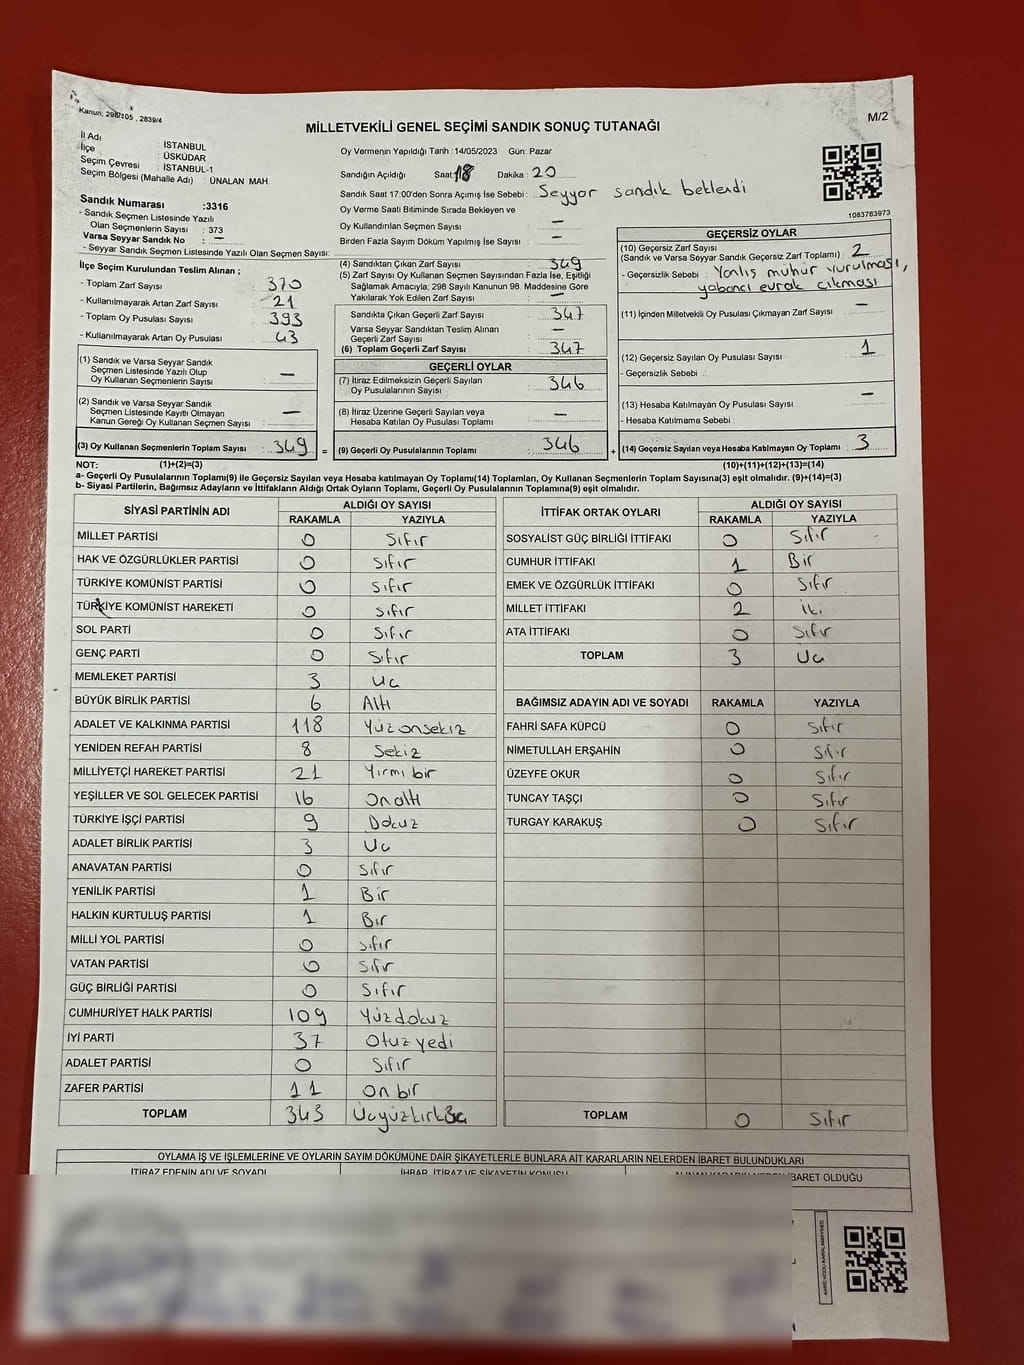 Kanun, 298/105 , 2839/4
M/2
MİLLETVEKİLİ GENEL SEÇİMİ SANDIK SONUÇ TUTANAĞI
İl Adı : İSTANBUL
İlçe : ÜSKÜDAR
Seçim Çevresi : İSTANBUL-1
Seçim Bölgesi (Mahalle Adı) : ÜNALAN MAH.
Oy Vermenin Yapıldığı Tarih :14/05/2023 Gün: Pazar
Sandığın Açıldığı Saat: 18 Dakika : 20
Sandık Saat 17:00'den Sonra Açımış İse Sebebi : Seyyar sandık beklendi
Oy Verme Saati Bitiminde Sırada Bekleyen ve
Oy Kullandırılan Seçmen Sayısı : —
Birden Fazla Sayım Döküm Yapılmış İse Sayısı : —
1083783973
Sandık Numarası :3316
- Sandık Seçmen Listesinde Yazılı
Olan Seçmenlerin Sayısı : 373
Varsa Seyyar Sandık No : —
- Seyyar Sandık Seçmen Listesinde Yazılı Olan Seçmen Sayısı:
İlçe Seçim Kurulundan Teslim Alınan ;
- Toplam Zarf Sayısı : 370
- Kullanılmayarak Artan Zarf Sayısı : 21
- Toplam Oy Pusulası Sayısı : 393
- Kullanılmayarak Artan Oy Pusulası : 43
(1) Sandık ve Varsa Seyyar Sandık
Seçmen Listesinde Yazılı Olup
Oy Kullanan Seçmenlerin Sayısı : —
(2) Sandık ve Varsa Seyyar Sandık
Seçmen Listesinde Kayıtlı Olmayan
Kanun Gereği Oy Kullanan Seçmen Sayısı : —
(3) Oy Kullanan Seçmenlerin Toplam Sayısı : 349 =
(4) Sandıktan Çıkan Zarf Sayısı : 349
(5) Zarf Sayısı Oy Kullanan Seçmen Sayısından Fazla İse, Eşitliği
Sağlamak Amacıyla, 298 Sayılı Kanunun 98. Maddesine Göre
Yakılarak Yok Edilen Zarf Sayısı : —
Sandıkta Çıkan Geçerli Zarf Sayısı : 347
Varsa Seyyar Sandıktan Teslim Alınan
Geçerli Zarf Sayısı : —
(6) Toplam Geçerli Zarf Sayısı : 347
GEÇERLİ OYLAR
(7) İtiraz Edilmeksizin Geçerli Sayılan
Oy Pusulalarının Sayısı : 346
(8) İtiraz Üzerine Geçerli Sayılan veya
Hesaba Katılan Oy Pusulası Toplamı : —
(9) Geçerli Oy Pusulalarının Toplamı : 346 +
GEÇERSİZ OYLAR
(10) Geçersiz Zarf Sayısı
(Sandık ve Varsa Seyyar Sandık Geçersiz Zarf Toplamı) : 2
- Geçersizlik Sebebi : Yanlış mühür vurulması,
yabancı evrak çıkması
(11) İçinden Milletvekili Oy Pusulası Çıkmayan Zarf Sayısı : —
(12) Geçersiz Sayılan Oy Pusulası Sayısı : 1
- Geçersizlik Sebebi :
(13) Hesaba Katılmayan Oy Pusulası Sayısı : —
- Hesaba Katılmama Sebebi :
(14) Geçersiz Sayılan veya Hesaba Katılmayan Oy Toplamı : 3
NOT: (1)+(2)=(3) (10)+(11)+(12)+(13)=(14)
a- Geçerli Oy Pusulalarının Toplamı(9) ile Geçersiz Sayılan veya Hesaba katılmayan Oy Toplamı(14) Toplamları, Oy Kullanan Seçmenlerin Toplam Sayısına(3) eşit olmalıdır. (9)+(14)=(3)
b- Siyasi Partilerin, Bağımsız Adayların ve İttifakların Aldığı Ortak Oyların Toplamı, Geçerli Oy Pusulalarının Toplamına(9) eşit olmalıdır.
SİYASİ PARTİNİN ADI ALDIĞI OY SAYISI
RAKAMLA YAZIYLA
MİLLET PARTİSİ 0 Sıfır
HAK VE ÖZGÜRLÜKLER PARTİSİ 0 Sıfır
TÜRKİYE KOMÜNİST PARTİSİ 0 Sıfır
TÜRKİYE KOMÜNİST HAREKETİ 0 Sıfır
SOL PARTİ 0 Sıfır
GENÇ PARTİ 0 Sıfır
MEMLEKET PARTİSİ 3 Uc
BÜYÜK BİRLİK PARTİSİ 6 Altı
ADALET VE KALKINMA PARTİSİ 118 Yüzonsekiz
YENİDEN REFAH PARTİSİ 8 Sekiz
MİLLİYETÇİ HAREKET PARTİSİ 21 Yirmi bir
YEŞİLLER VE SOL GELECEK PARTİSİ 16 Onaltı
TÜRKİYE İŞÇİ PARTİSİ 9 Dokuz
ADALET BİRLİK PARTİSİ 3 Uc
ANAVATAN PARTİSİ 0 Sıfır
YENİLİK PARTİSİ 1 Bir
HALKIN KURTULUŞ PARTİSİ 1 Bir
MİLLİ YOL PARTİSİ 0 Sıfır
VATAN PARTİSİ 0 Sıfır
GÜÇ BİRLİĞİ PARTİSİ 0 Sıfır
CUMHURİYET HALK PARTİSİ 109 Yüzdokuz
İYİ PARTİ 37 Otuz yedi
ADALET PARTİSİ 0 Sıfır
ZAFER PARTİSİ 11 On bir
TOPLAM 343
İTTİFAK ORTAK OYLARI ALDIĞI OY SAYISI
RAKAMLA YAZIYLA
SOSYALİST GÜÇ BİRLİĞİ İTTİFAKI 0 Sıfır
CUMHUR İTTİFAKI 1 Bir
EMEK VE ÖZGÜRLÜK İTTİFAKI 0 Sıfır
MİLLET İTTİFAKI 2 İki
ATA İTTİFAKI 0 Sıfır
TOPLAM 3 Uc
BAĞIMSIZ ADAYIN ADI VE SOYADI RAKAMLA YAZIYLA
FAHRİ SAFA KÜPCÜ 0 Sıfır
NİMETULLAH ERŞAHİN 0 Sıfır
ÜZEYFE OKUR 0 Sıfır
TUNCAY TAŞÇI 0 Sıfır
TURGAY KARAKUŞ 0 Sıfır
TOPLAM 0 Sıfır
OYLAMA İŞ VE İŞLEMLERİNE VE OYLARIN SAYIM DÖKÜMÜNE DAİR ŞİKAYETLERLE BUNLARA AİT KARARLARIN NELERDEN İBARET BULUNDUKLARI
İTİRAZ EDENİN ADI VE SOYADI İHBAR, İTİRAZ VE ŞİKAYETİN KONUSU ALINAN KARARIN NEDEN İBARET OLDUĞU